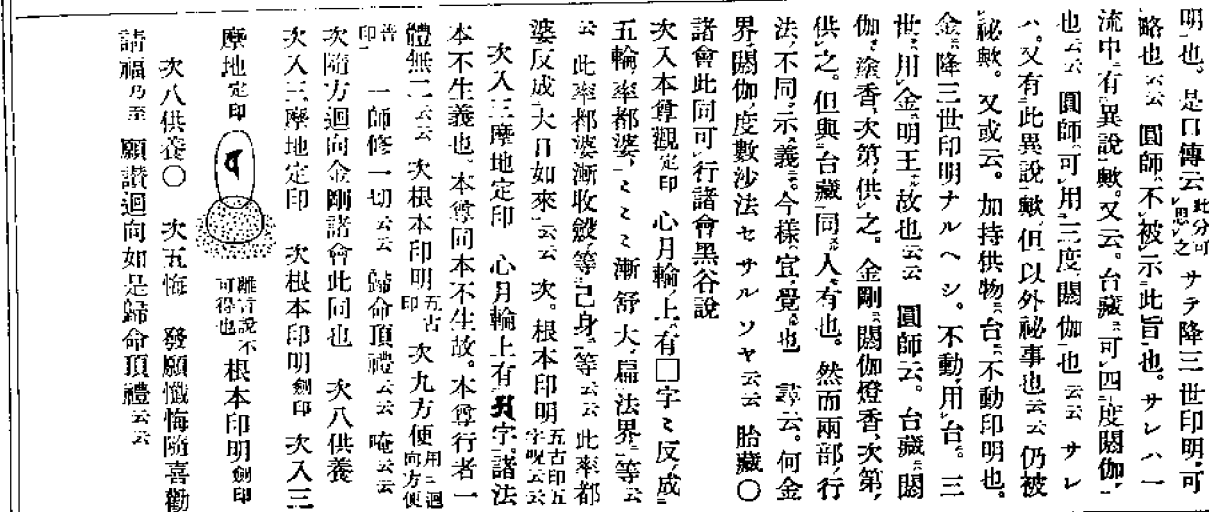 明也。是口傳云此分可思之サテ降三世印明、可
略也云云 圓師、不被示此旨也。サレハ一
流中有異說歟。又云。台藏ニ可四度閼伽
也云云 圓師、可用三度閼伽也云云 サレ
ハ。又有此異說歟。但以外祕事也云云 仍被
祕歟。又或云。加持供物、台ニ不動印明也。
金ニ降三世印明ナルヘシ。不動、用台。三
世ニ用金明王故也云云 圓師云。台藏ニ閼
伽、塗香、次第供之。金剛ニ閼伽燈香、次第
供之。但與台藏同人有也。然而兩部行
法、不同示義ニ。今樣宜覺也 尋云。何金
界閼伽度數沙法セサルソヤ云云 胎藏〇
諸會此同可行諸會黑谷說
次入本尊觀定印 心月輪上有□字〻反成
五輪率都婆〻〻〻漸舒大、扁法界等云
云 此率都婆漸收斂、等己身等云云 此率都
婆反成大日如來云云 次。根本印明五古印五字呪云云
次入三摩地定印 心月輪上有字。諸法
本不生義也。本尊同本不生故。本尊行者一
體無二云云 次根本印明五古印 次九方便用三迴向方便
普印 一師修一切云云 歸命頂禮云云 唵云云
次隨方迴向金剛諸會此同也 次八供養
次入三摩地定印 次根本印明劍印 次入三
摩地定印 離言說不可得也 根本印明劍印
次八供養〇 次五悔 發願懺悔隨喜勸
請福乃至 願讚迴向如是歸命頂禮云云